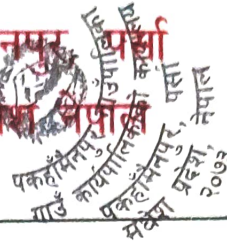 नपुर पर्सा
नेपाल
पकहाँमैनपुर गाउँपालिका
गाउँ कार्यपालिकाको कार्यालय
पकहाँमैनपुर, पर्सा
मधेश प्रदेश, नेपाल
२०७३